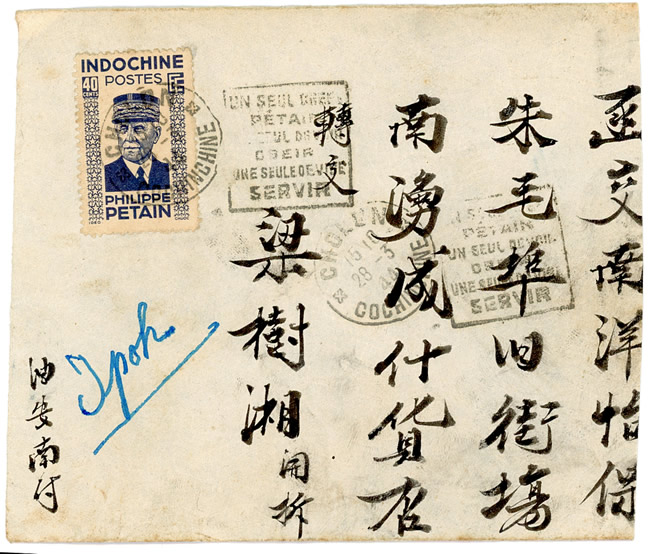 INDOCHINE
POSTES
40 CENTS
PHILIPPE
PETAIN
UN SEUL CHEF
PÉTAIN
SEUL DE
OBEIR
UNE SEULE DEVISE
SERVIR
CHOLON
28-3
COCHINCHINE
UN SEUL
PETAIN
UN SEUL DEVOIR
SERVIR
函交南洋怡保
朱毛埠旧街場
南湧成什货店
轉交
梁樹湘 開拆
Ipoh
油安南付